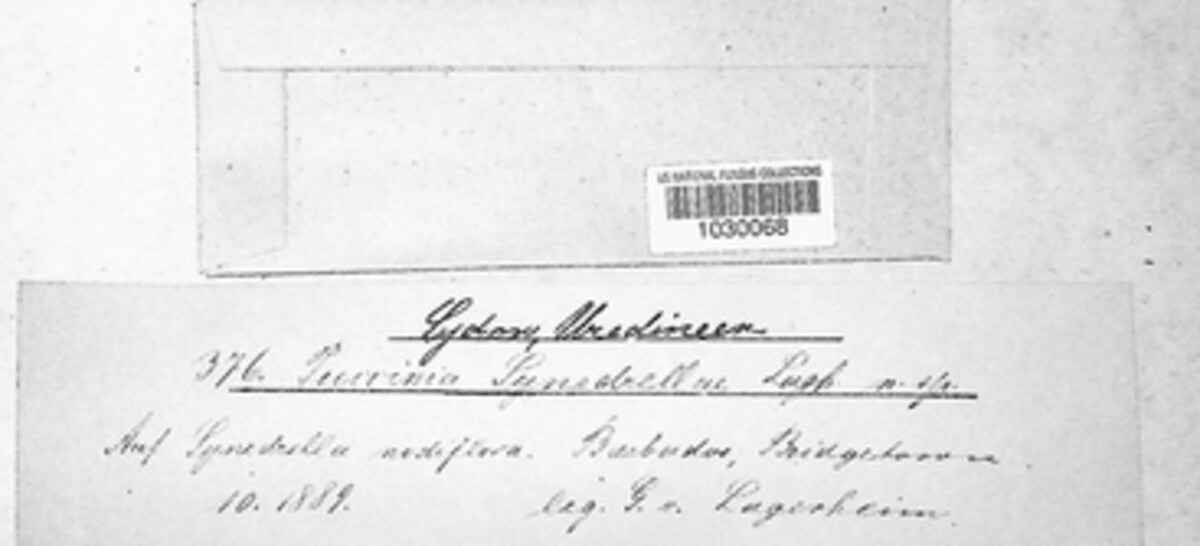 US NATIONAL FUNGUS COLLECTIONS
1030068
Sydow, Uredineen
376. Puccinia Synedrellae Lagh. n. sp.
Auf Synedrella nodiflora. Barbados, Bridgetown
10. 1889. leg. G. v. Lagerheim.